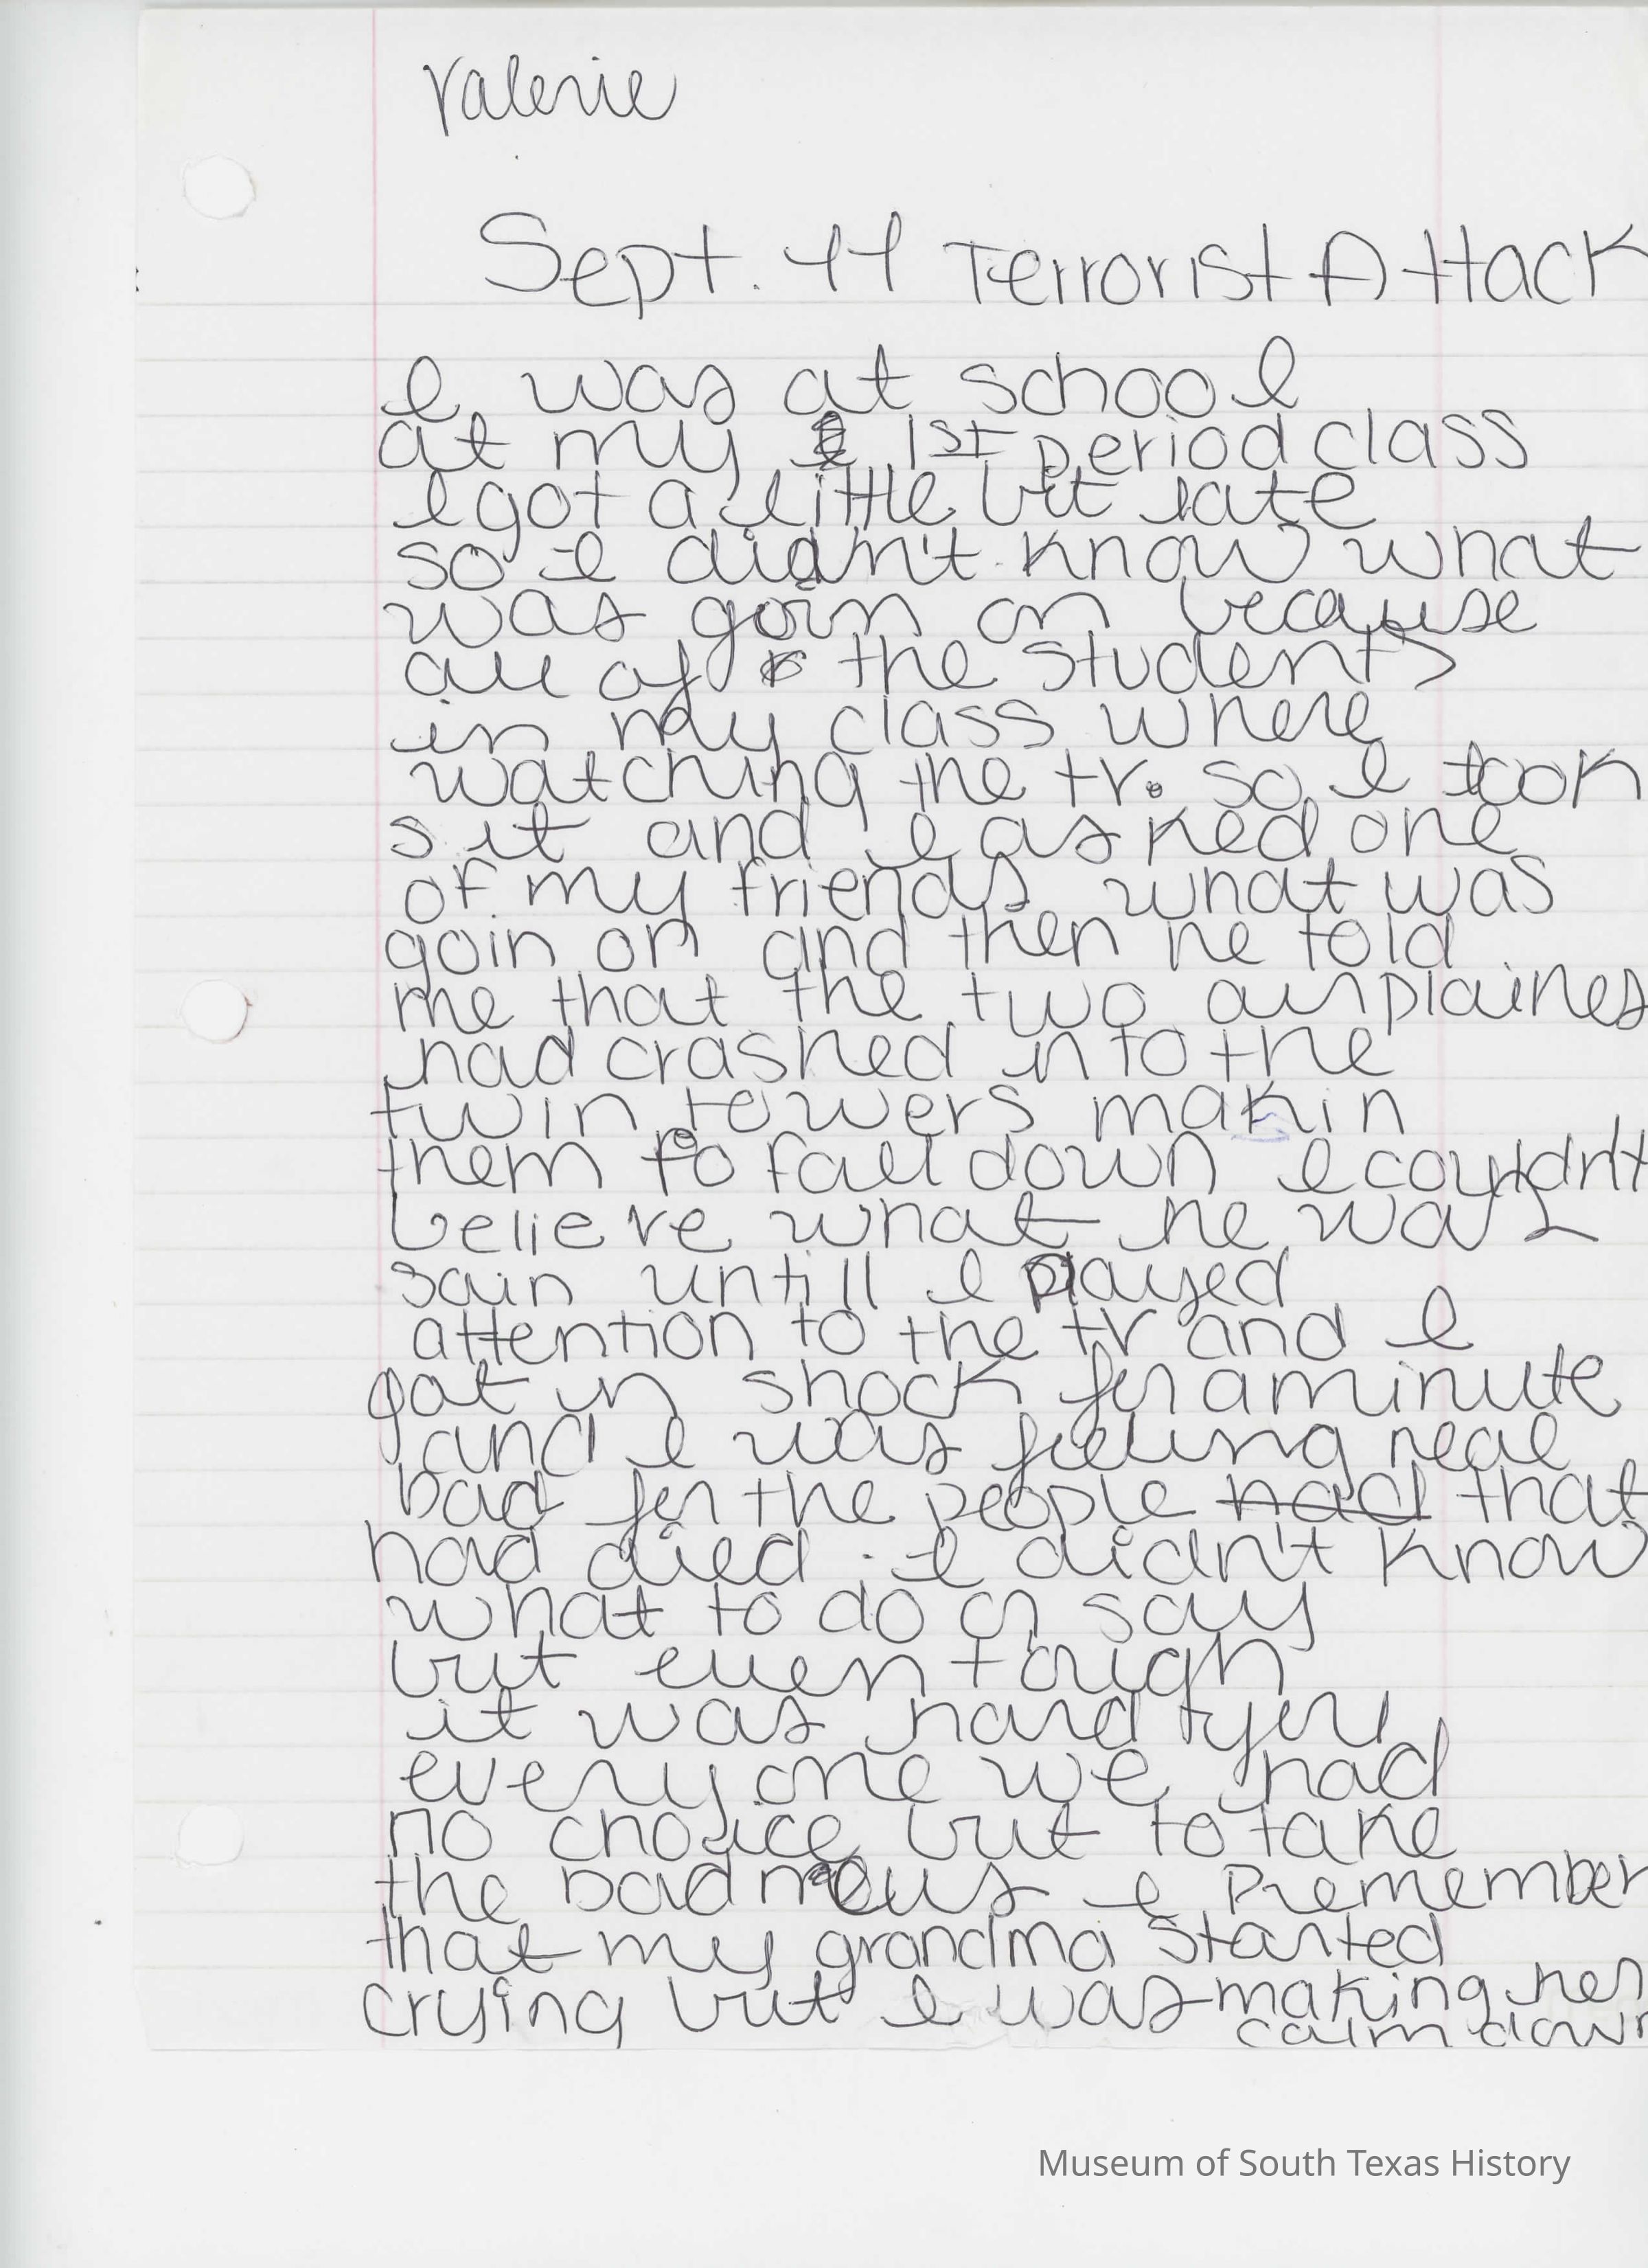 Valerie
Sept. 11 Terrorist Attack
I was at school
at my 1st period class
I got a little bit late
so I didn't know what
was goin on because
all of the students
in my class where
watching the tv. so I took
sit and I asked one
of my friends what was
goin on and then he told
me that the two airplaines
had crashed into the
twin towers makin
them to fall down I couldn't
believe what he was
sain untill I played
attention to the tv and I
got in shock for a minute
and I was feeling real
bad for the people had that
had died. I didn't know
what to do or say
but even tough
it was hard for
everyone we had
no choice but to take
the bad news I remember
that my grandma started
crying but I was making her
calm down
Museum of South Texas History